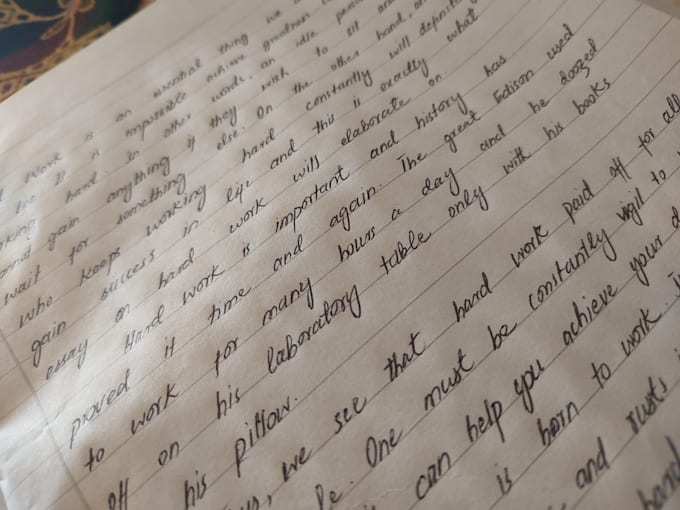 Work is an essential thing we
is impossible achieve greatness
hard. In other words, an idle
gain anything if they wish to sit and
wait for something else. On the other hand,
who keeps working hard constantly will definitely
gain success in life and this is exactly what
essay on hard work will elaborate on
Hard work is important and history has
proved it time and again. The great Edison used
to work for many hours a day and he doozed
off on his laboratory table only with his books
his pillow.
we see that hard work paid off for all
One must be constantly vigil to
can help you achieve your
is born to work.
and rusts
hard